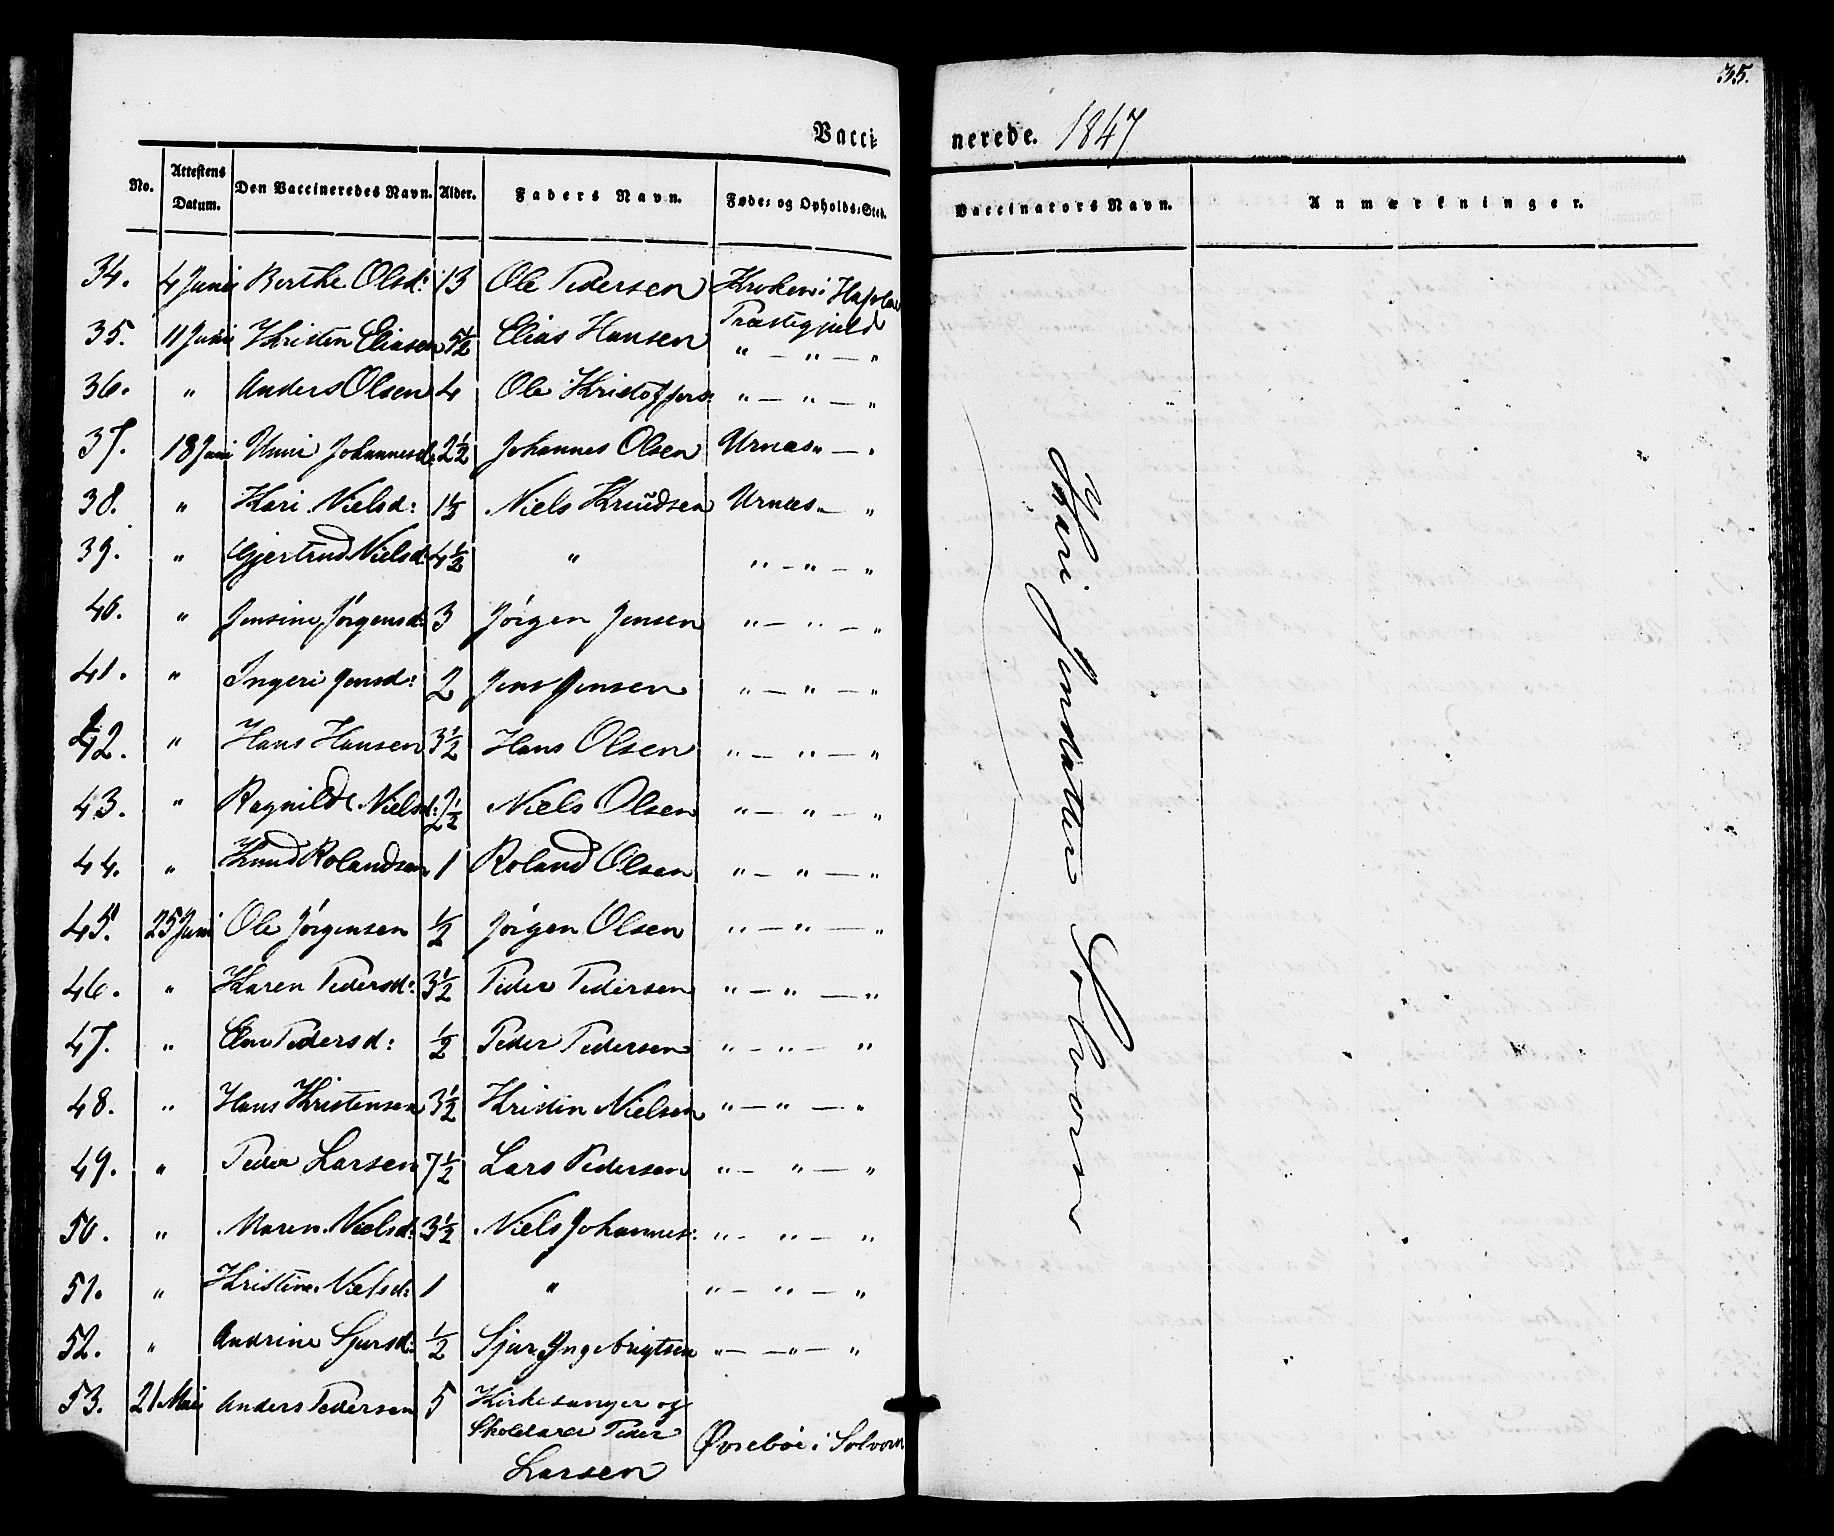 35.
Vacci- nerede. 1847
No. Attestens Datum. Den Vaccineredes Navn. Alder. Faders Navn. Føde- og Opholds-Sted. Vaccinators Navn. Anmærkninger.
34. 4 Juni Berthe Olsd: 13 Ole Pedersen Kroken i Hafslo
Præstegjeld
35. 11 Juni Kristen Eliasen 5½ Elias Hansen " — " — "
36. " Anders Olsen 4 Ole Kristoffers: " — " — "
37. 18 Juni Unni Johannesd: 2½ Johannes Olsen Urnæs " — "
38. " Kari Nielsd: 1½ Niels Knudsen Urnæs " — "
39. " Gjertrud Nielsd: 4½ " " — " — "
40. " Jensine Jørgensd: 3 Jørgen Jensen " — " — "
41. " Ingeri Jensd: 2 Jens Jensen " — " — "
42. " Hans Hansen 3½ Hans Olsen " — " — "
43. " Ragnilde Nielsd: 2½ Niels Olsen " — " — "
44. " Knud Rolandsen 1 Roland Olsen " — " — "
45. 25 Juni Ole Jørgensen ½ Jørgen Olsen " — " — "
46. " Karen Pedersd: 3½ Peder Pedersen " — " — "
47. " Pedersd: ½ Peder Pedersen " — " — "
48. " Hans Kristensen 3½ Kristen Nielsen " — " — "
49. " Peder Larsen 7½ Lars Pedersen " — " — "
50. " Maren Nielsd: 3½ Niels Johannes: " — " — "
51. " Kristine Nielsd: 1 " " — " — "
52. " Andrine Sjursd: ½ Sjur Yngebrigtsen " — " — "
53. 21 Mai Anders Pedersen 5 Kirkesanger og
Skolelærer Peder
Larsen Øvrebøe i Solvorn
Kari Solvorn